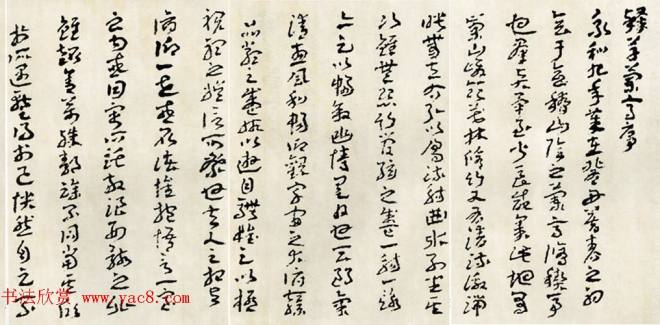 草蘭亭序
永和九年歲在癸丑暮春之初
會于會稽山陰之蘭亭脩禊事
也群賢畢至少長咸集此地有
崇山峻領茂林脩竹又有清流激湍
暎帶左右引以為流觴曲水列坐其
次雖無絲竹管弦之盛一觴一詠
亦足以暢敘幽情是日也天朗氣
清惠風和暢仰觀宇宙之大俯察
品類之盛所以遊目騁懷足以極
視聽之娛信可樂也夫人之相與
俯仰一世或取諸懷抱悟言一室
之內或因寄所託放浪形骸之外
雖趣舍萬殊靜躁不同當其欣
於所遇蹔得於己怏然自足不
书法欣赏 www.yac8.com